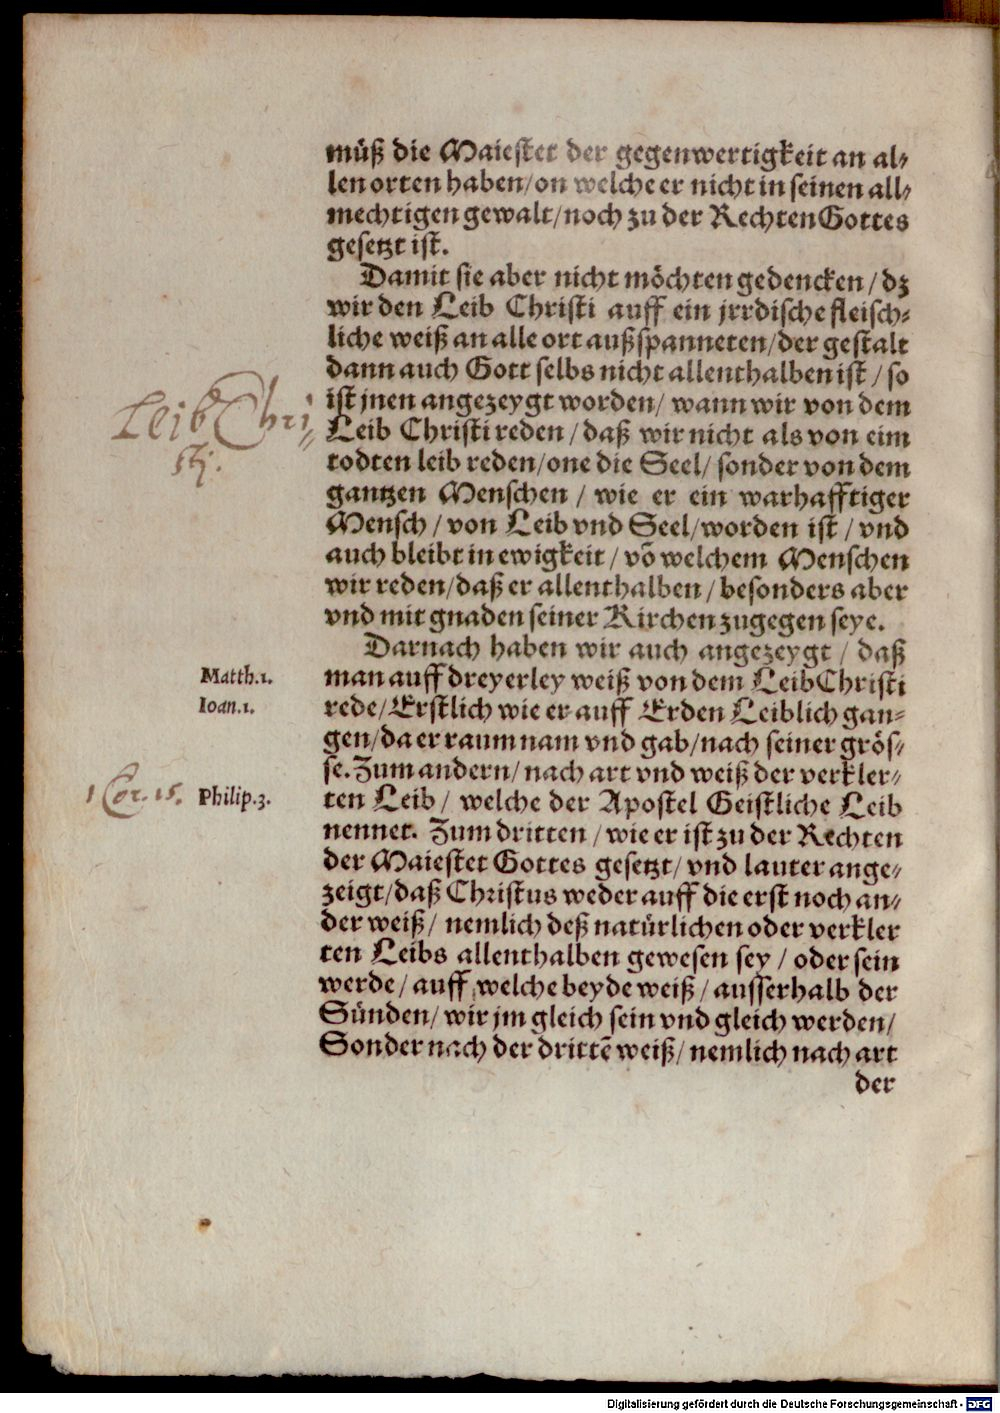 müß die Maiestet der gegenwertigkeit an al-
len orten haben/ on welche er nicht in seinen all-
mechtigen gewalt/ noch zu der Rechten Gottes
gesetzt ist.
Damit sie aber nicht möchten gedencken/ dz
wir den Leib Christi auff ein jrrdische fleisch-
liche weiß an alle ort außspanneten/ der gestalt
dann auch Gott selbs nicht allenthalben ist/ so
ist jnen angezeygt worden/ wann wir von dem
Leib Christi reden/ daß wir nicht als von eim
todten leib reden/ one die Seel/ sonder von dem
gantzen Menschen/ wie er ein warhafftiger
Mensch/ von Leib vnd Seel/ worden ist/ vnd
auch bleibt in ewigkeit/ võ welchem Menschen
wir reden/ daß er allenthalben/ besonders aber
vnd mit gnaden seiner Kirchen zugegen seye.
Leib Chri-
stj.
Darnach haben wir auch angezeygt/ daß
man auff dreyerley weiß von dem Leib Christi
rede/ Erstlich wie er auff Erden Leiblich gan-
gen/ da er raum nam vnd gab/ nach seiner grös-
se. Zum andern/ nach art vnd weiß der verkler-
ten Leib/ welche der Apostel Geistliche Leib
nennet. Zum dritten/ wie er ist zu der Rechten
der Maiestet Gottes gesetzt/ vnd lauter ange-
zeigt/ daß Christus weder auff die erst noch an-
der weiß/ nemlich deß natürlichen oder verkler
ten Leibs allenthalben gewesen sey/ oder sein
werde/ auff welche beyde weiß/ ausserhalb der
Sünden/ wir jm gleich sein vnd gleich werden/
Sonder nach der drittẽ weiß/ nemlich nach art
der
Matth.1.
Ioan.1.
1 Cor. 15.
Philip.3.
Digitalisierung gefördert durch die Deutsche Forschungsgemeinschaft - DFG